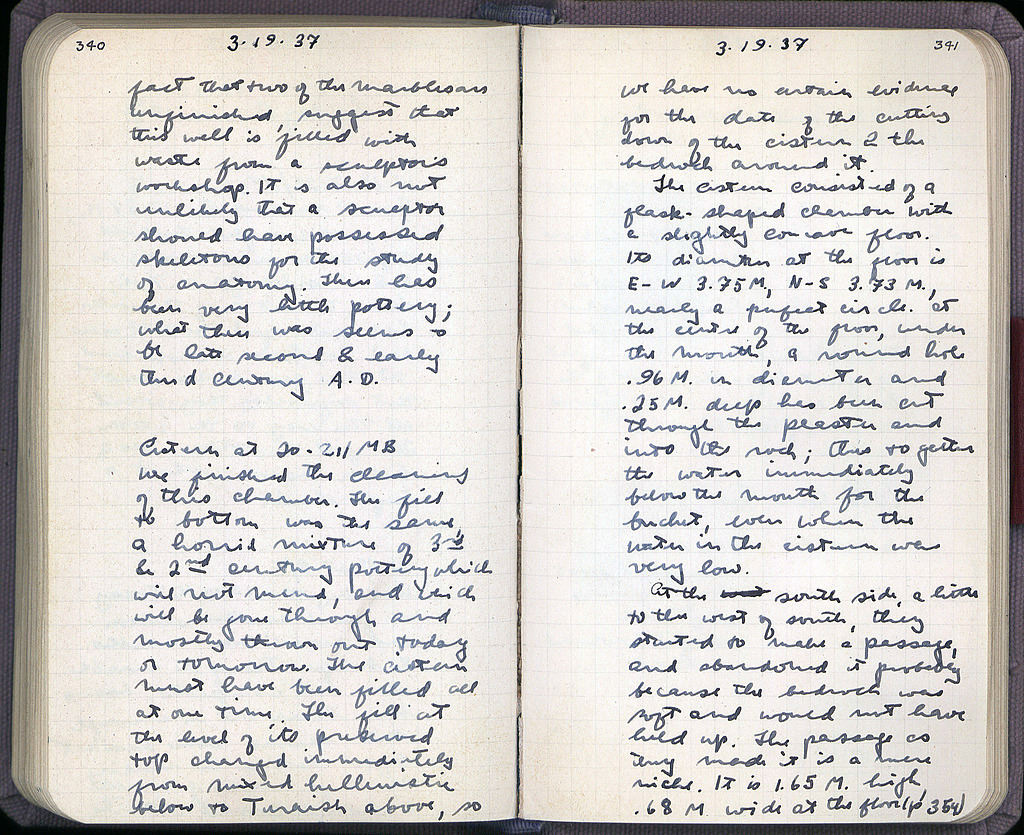 340
3.19.37
fact that two of the marbles are
unfinished, suggest that
this well is filled with
waste from a sculptor's
workshop. It is also not
unlikely that a sculptor
should have possessed
skeletons for the study
of anatomy. There has
been very little pottery;
what there was seems to
be late second & early
third century A.D.
Cistern at 20-21/ΜΒ
We finished the clearing
of this chamber. The fill
to bottom was the same,
a horrid mixture of 3rd
& 2nd century pottery which
will not mend, and which
will be gone through and
mostly thrown out today
or tomorrow. The cistern
must have been filled all
at one time. The fill at
the level of its preserved
top changed immediately
from mixed hellenistic
below to Turkish above, so
3.19.37
341
we have no certain evidence
for the date of the cutting
down of the cistern & the
bedrock around it.
The cistern consisted of a
flask-shaped chamber with
a slightly concave floor.
Its diameter at the floor is
E-W 3.75 M, N-S 3.73 M.,
nearly a perfect circle. At
the centre of the floor, under
the mouth, a round hole
.96 M. in diameter and
.25 M. deep has been cut
through the plaster and
into the rock; this to gather
the water immediately
below the mouth for the
bucket, even when the
water in the cistern was
very low.
At the south side, a little
to the west of south, they
started to make a passage,
and abandoned it probably
because the bedrock was
soft and would not have
held up. The passage as
they made it is a mere
niche. It is 1.65 M. high,
.68 M wide at the floor (p 354)